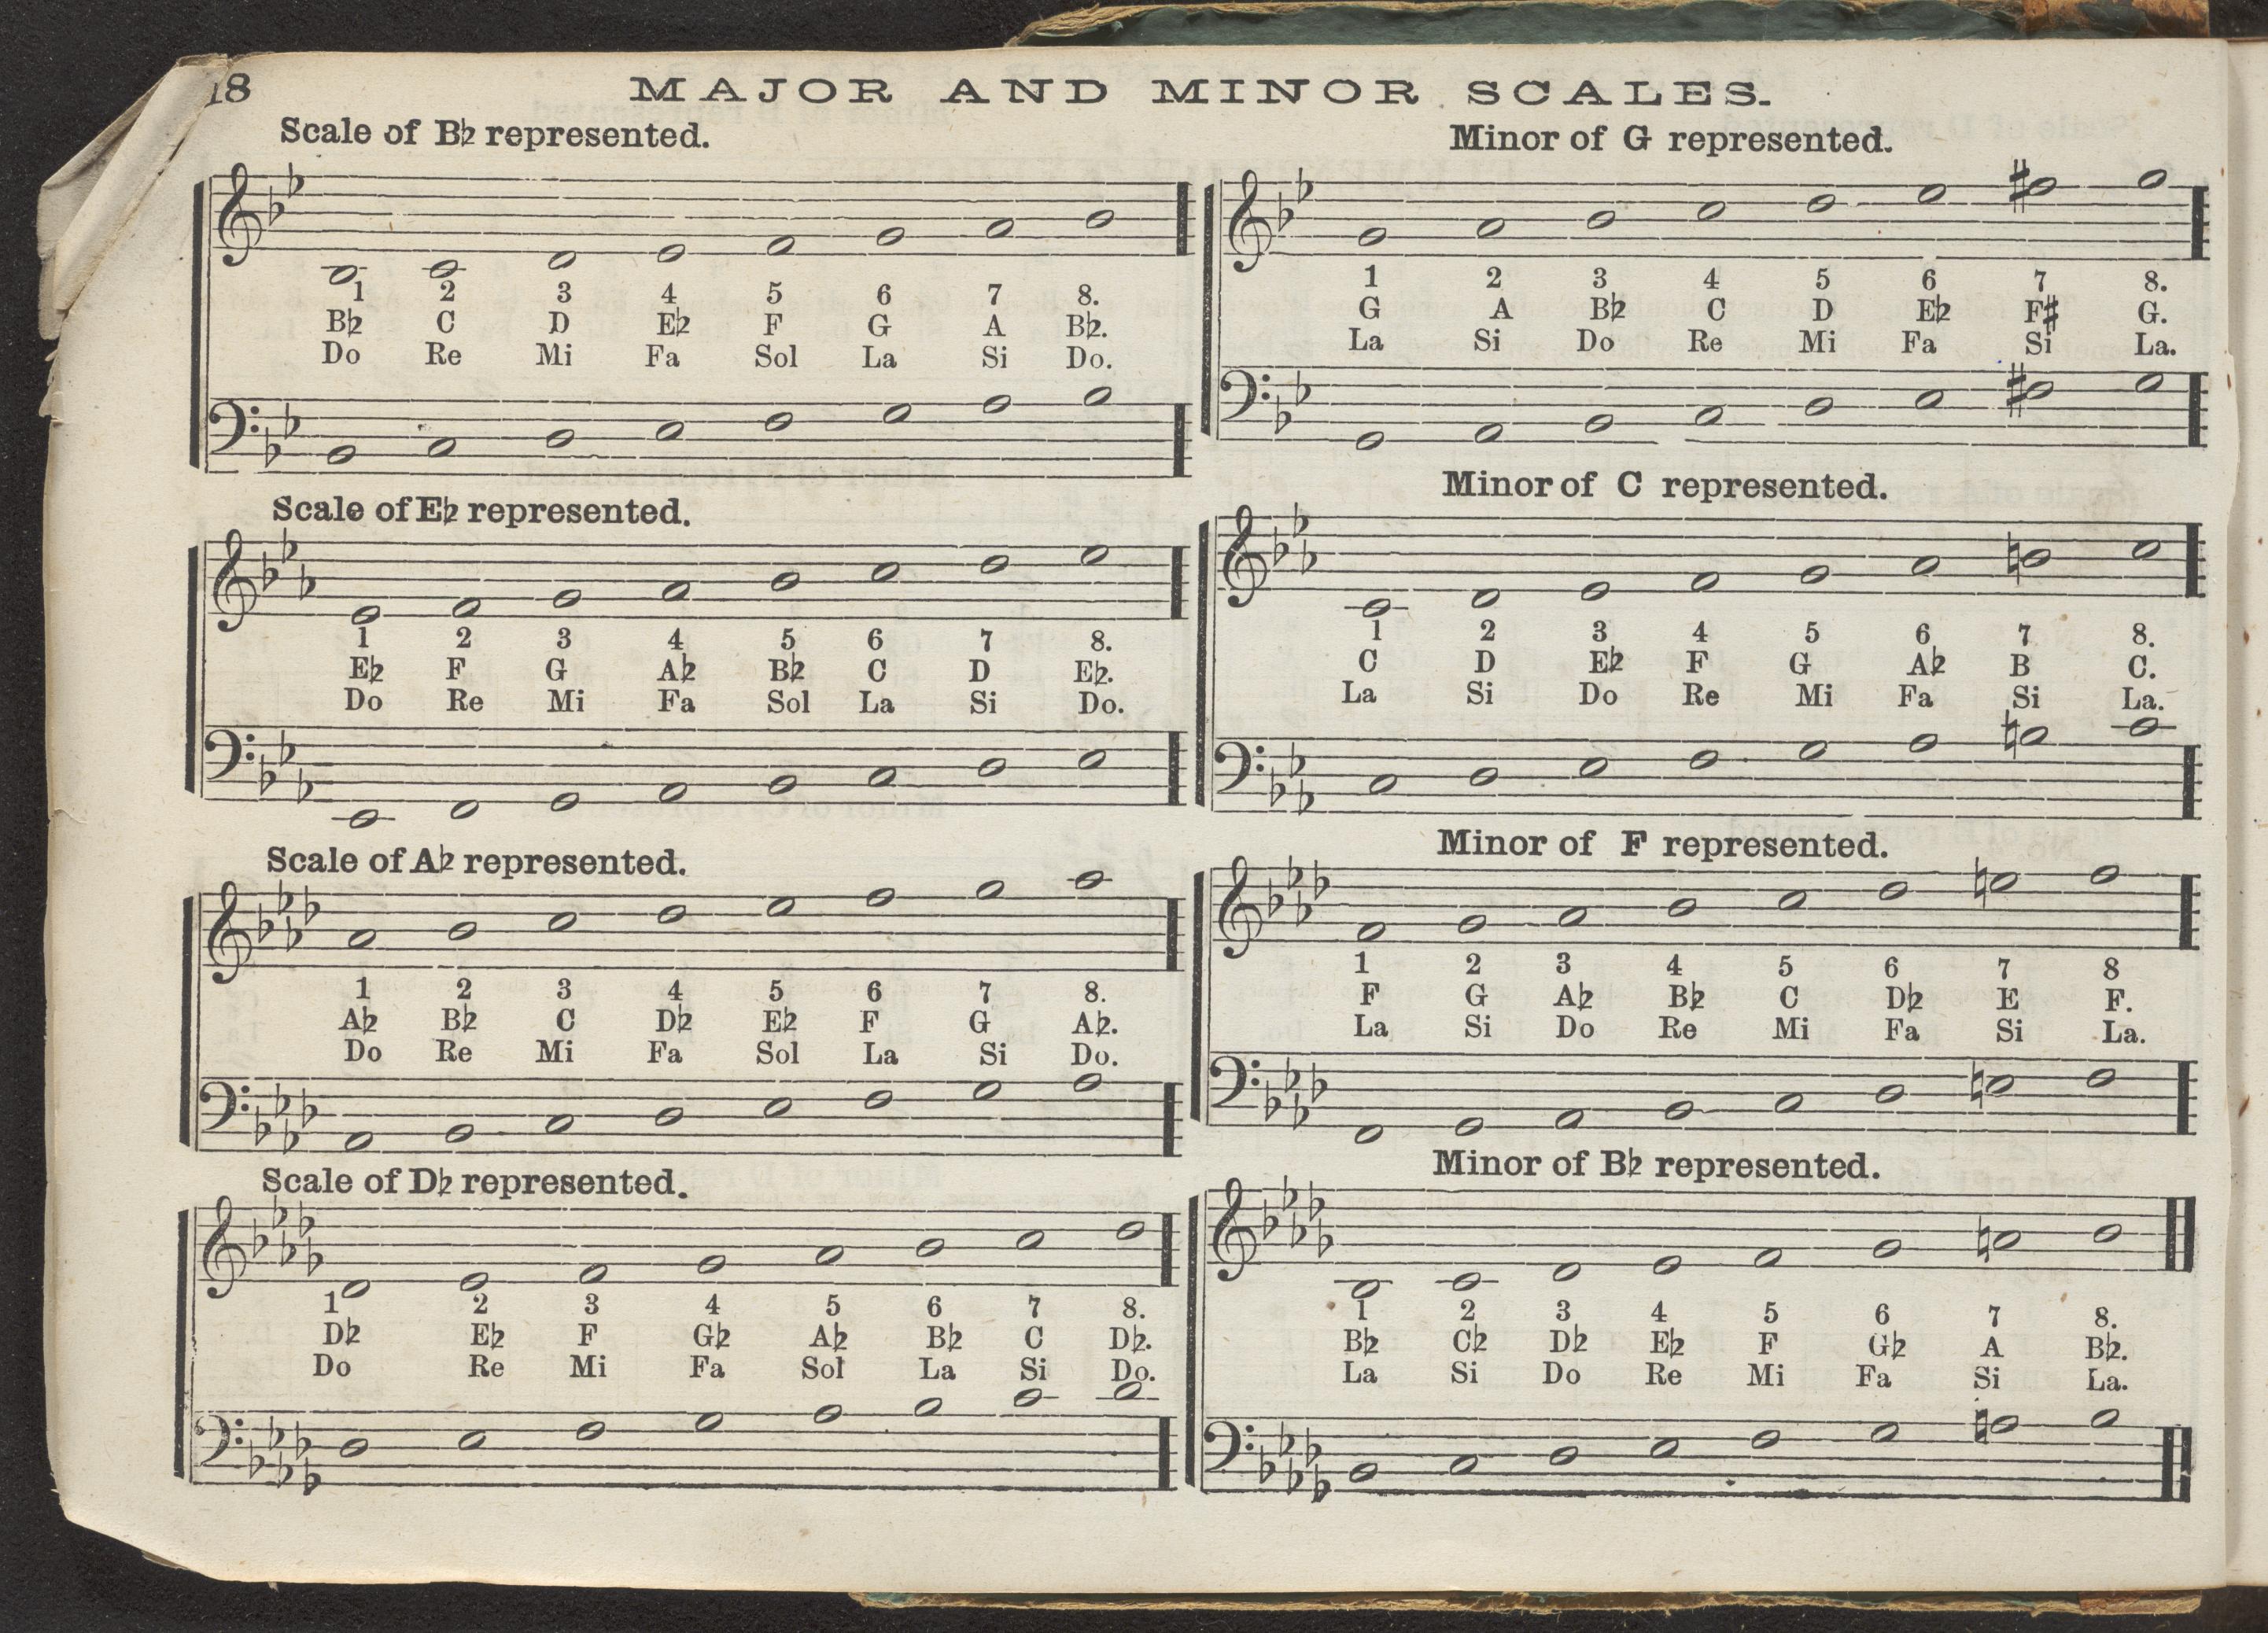 18
MAJOR AND MINOR SCALES.
Scale of B♭ represented.
1 2 3 4 5 6 7 8.
B♭ C D E♭ F G A B♭.
Do Re Mi Fa Sol La Si Do.
Minor of G represented.
1 2 3 4 5 6 7 8.
G A B♭ C D E♭ F♯ G.
La Si Do Re Mi Fa Si La.
Scale of E♭ represented.
1 2 3 4 5 6 7 8.
E♭ F G A♭ B♭ C D E♭.
Do Re Mi Fa Sol La Si Do.
Minor of C represented.
1 2 3 4 5 6 7 8.
C D E♭ F G A♭ B C.
La Si Do Re Mi Fa Si La.
Scale of A♭ represented.
1 2 3 4 5 6 7 8.
A♭ B♭ C D♭ E♭ F G A♭.
Do Re Mi Fa Sol La Si Do.
Minor of F represented.
1 2 3 4 5 6 7 8
F G A♭ B♭ C D♭ E F.
La Si Do Re Mi Fa Si La.
Scale of D♭ represented.
1 2 3 4 5 6 7 8.
D♭ E♭ F G♭ A♭ B♭ C D♭.
Do Re Mi Fa Sol La Si Do.
Minor of B♭ represented.
1 2 3 4 5 6 7 8.
B♭ C♭ D♭ E♭ F G♭ A B♭.
La Si Do Re Mi Fa Si La.